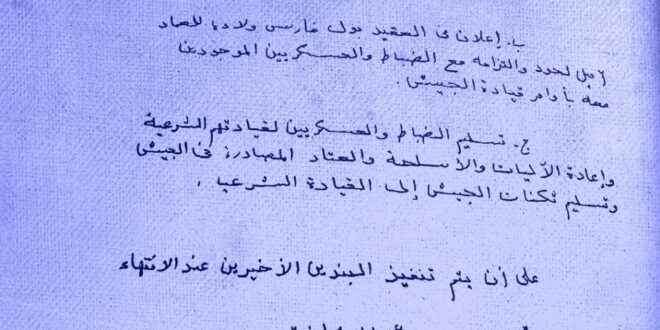 ب. إعلان من العقيد بول فارس ولاءه للعماد
اميل لحود والتزامه مع الضباط والعسكريين الموجودين
معه بأوامر قيادة الجيش.
ج. تسليم الضباط والعسكريين لقيادتهم الشرعية
وإعادة الآليات والأسلحة والعتاد المصادرة من الجيش
وتسليم ثكنات الجيش إلى القيادة الشرعية.
على أن يتم تنفيذ البندين الأخيرين عند الانتهاء